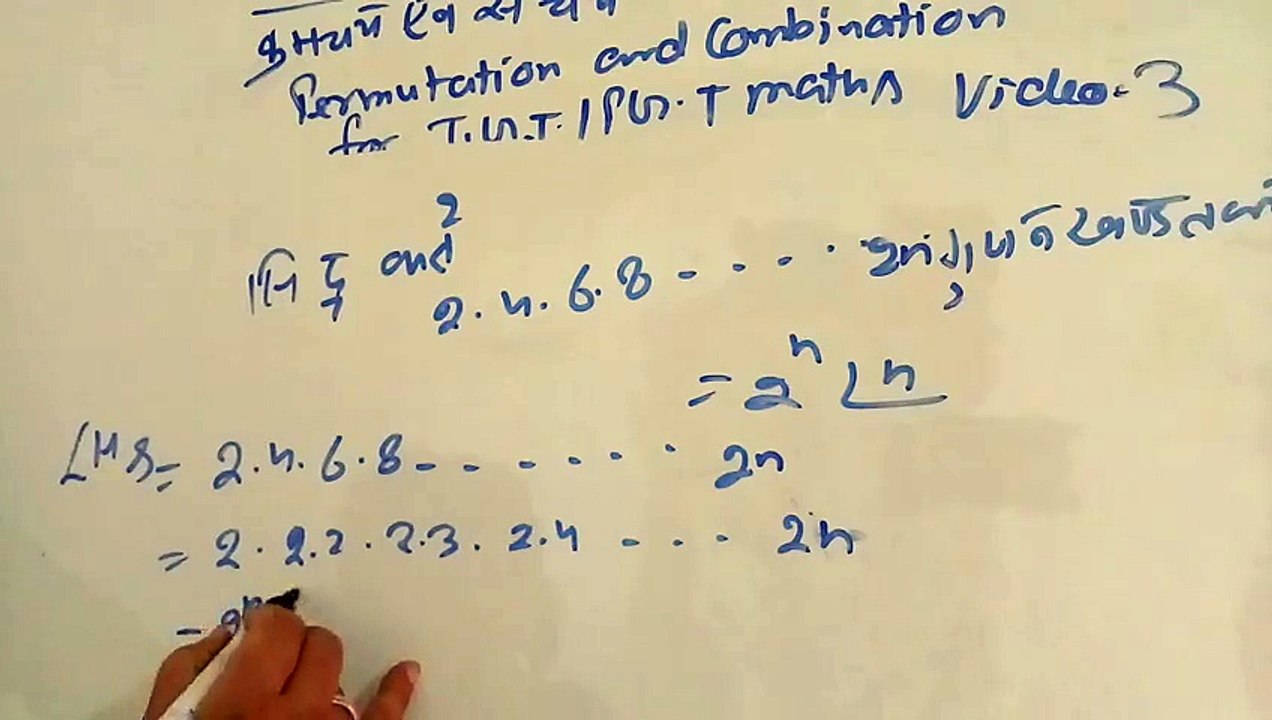 क्रमचय एवं संचय
Permutation and Combination
for T.G.T. / P.G.T maths Video-3
सिद्ध करो
2.4.6.8 - - - . 2n
= 2ⁿ ∟n
LHS = 2.4.6.8 - - - - - . 2n
= 2. 2.2. 2.3. 2.4 - - - 2n
= 2ⁿ